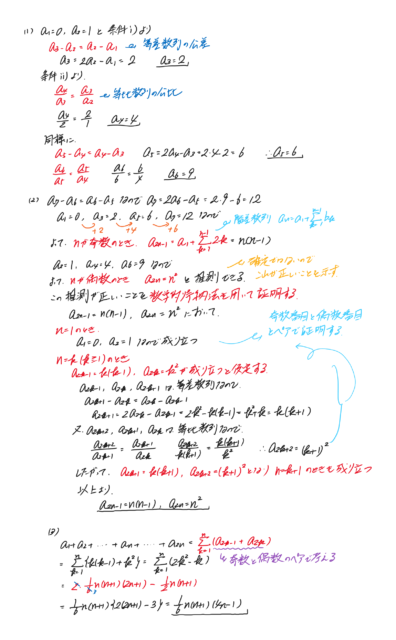 (1) a₁=0, a₂=1 と 条件 i) より
a₃-a₂=a₂-a₁ ← 等差数列の公差
a₃=2a₂-a₁=2 a₃=2
条件 ii) より
a₄/a₃=a₃/a₂ ← 等比数列の公比
a₄/2=2/1 a₄=4
同様に
a₅-a₄=a₄-a₃ a₅=2a₄-a₃=2·4-2=6 ∴a₅=6
a₆/a₅=a₅/a₄ a₆/6=6/4 a₆=9
(2) a₇-a₆=a₆-a₅ なので a₇=2a₆-a₅=2·9-6=12
a₁=0, a₃=2, a₅=6, a₇=12 なので
+2 +4 +6
よって nが奇数のとき a₂ₙ₋₁=a₁+Σ2k=n(n-1)
a₂=1, a₄=4, a₆=9 なので
よって nが偶数のとき a₂ₙ=n² と推測できる
この推測が正しいことを数学的帰納法を用いて証明する
a₂ₙ₋₁=n(n-1), a₂ₙ=n² において
奇数番目と偶数番目
とペアで証明する
n=1のとき
a₁=0, a₂=1 なので成り立つ
n=k(k≧1)のとき
a₂ₖ₋₁=k(k-1), a₂ₖ=k²が成り立つと仮定する
a₂ₖ₋₁, a₂ₖ, a₂ₖ₊₁ は等差数列なので
a₂ₖ₊₁-a₂ₖ=a₂ₖ-a₂ₖ₋₁
a₂ₖ₊₁=2a₂ₖ-a₂ₖ₋₁=2k²-k(k-1)=k²+k=k(k+1)
又 a₂ₖ₊₂, a₂ₖ₊₁, a₂ₖ は等比数列なので
a₂ₖ₊₂/a₂ₖ₊₁=a₂ₖ₊₁/a₂ₖ a₂ₖ₊₂/k(k+1)=k(k+1)/k² ∴a₂ₖ₊₂=(k+1)²
したがって a₂ₖ₊₁=k(k+1), a₂ₖ₊₂=(k+1)²となり n=k+1のときも成り立つ
以上より
a₂ₙ₋₁=n(n-1), a₂ₙ=n²
(3)
a₁+a₂+⋯+aₙ+⋯+a₂ₙ=Σ(a₂ₖ₋₁+a₂ₖ)
=Σ{k(k-1)+k²}=Σ(2k²-k) 奇数と偶数のペアで考える
=2·1/6n(n+1)(2n+1)-1/2n(n+1)
=1/6n(n+1){2(2n+1)-3}=1/6n(n+1)(4n-1)